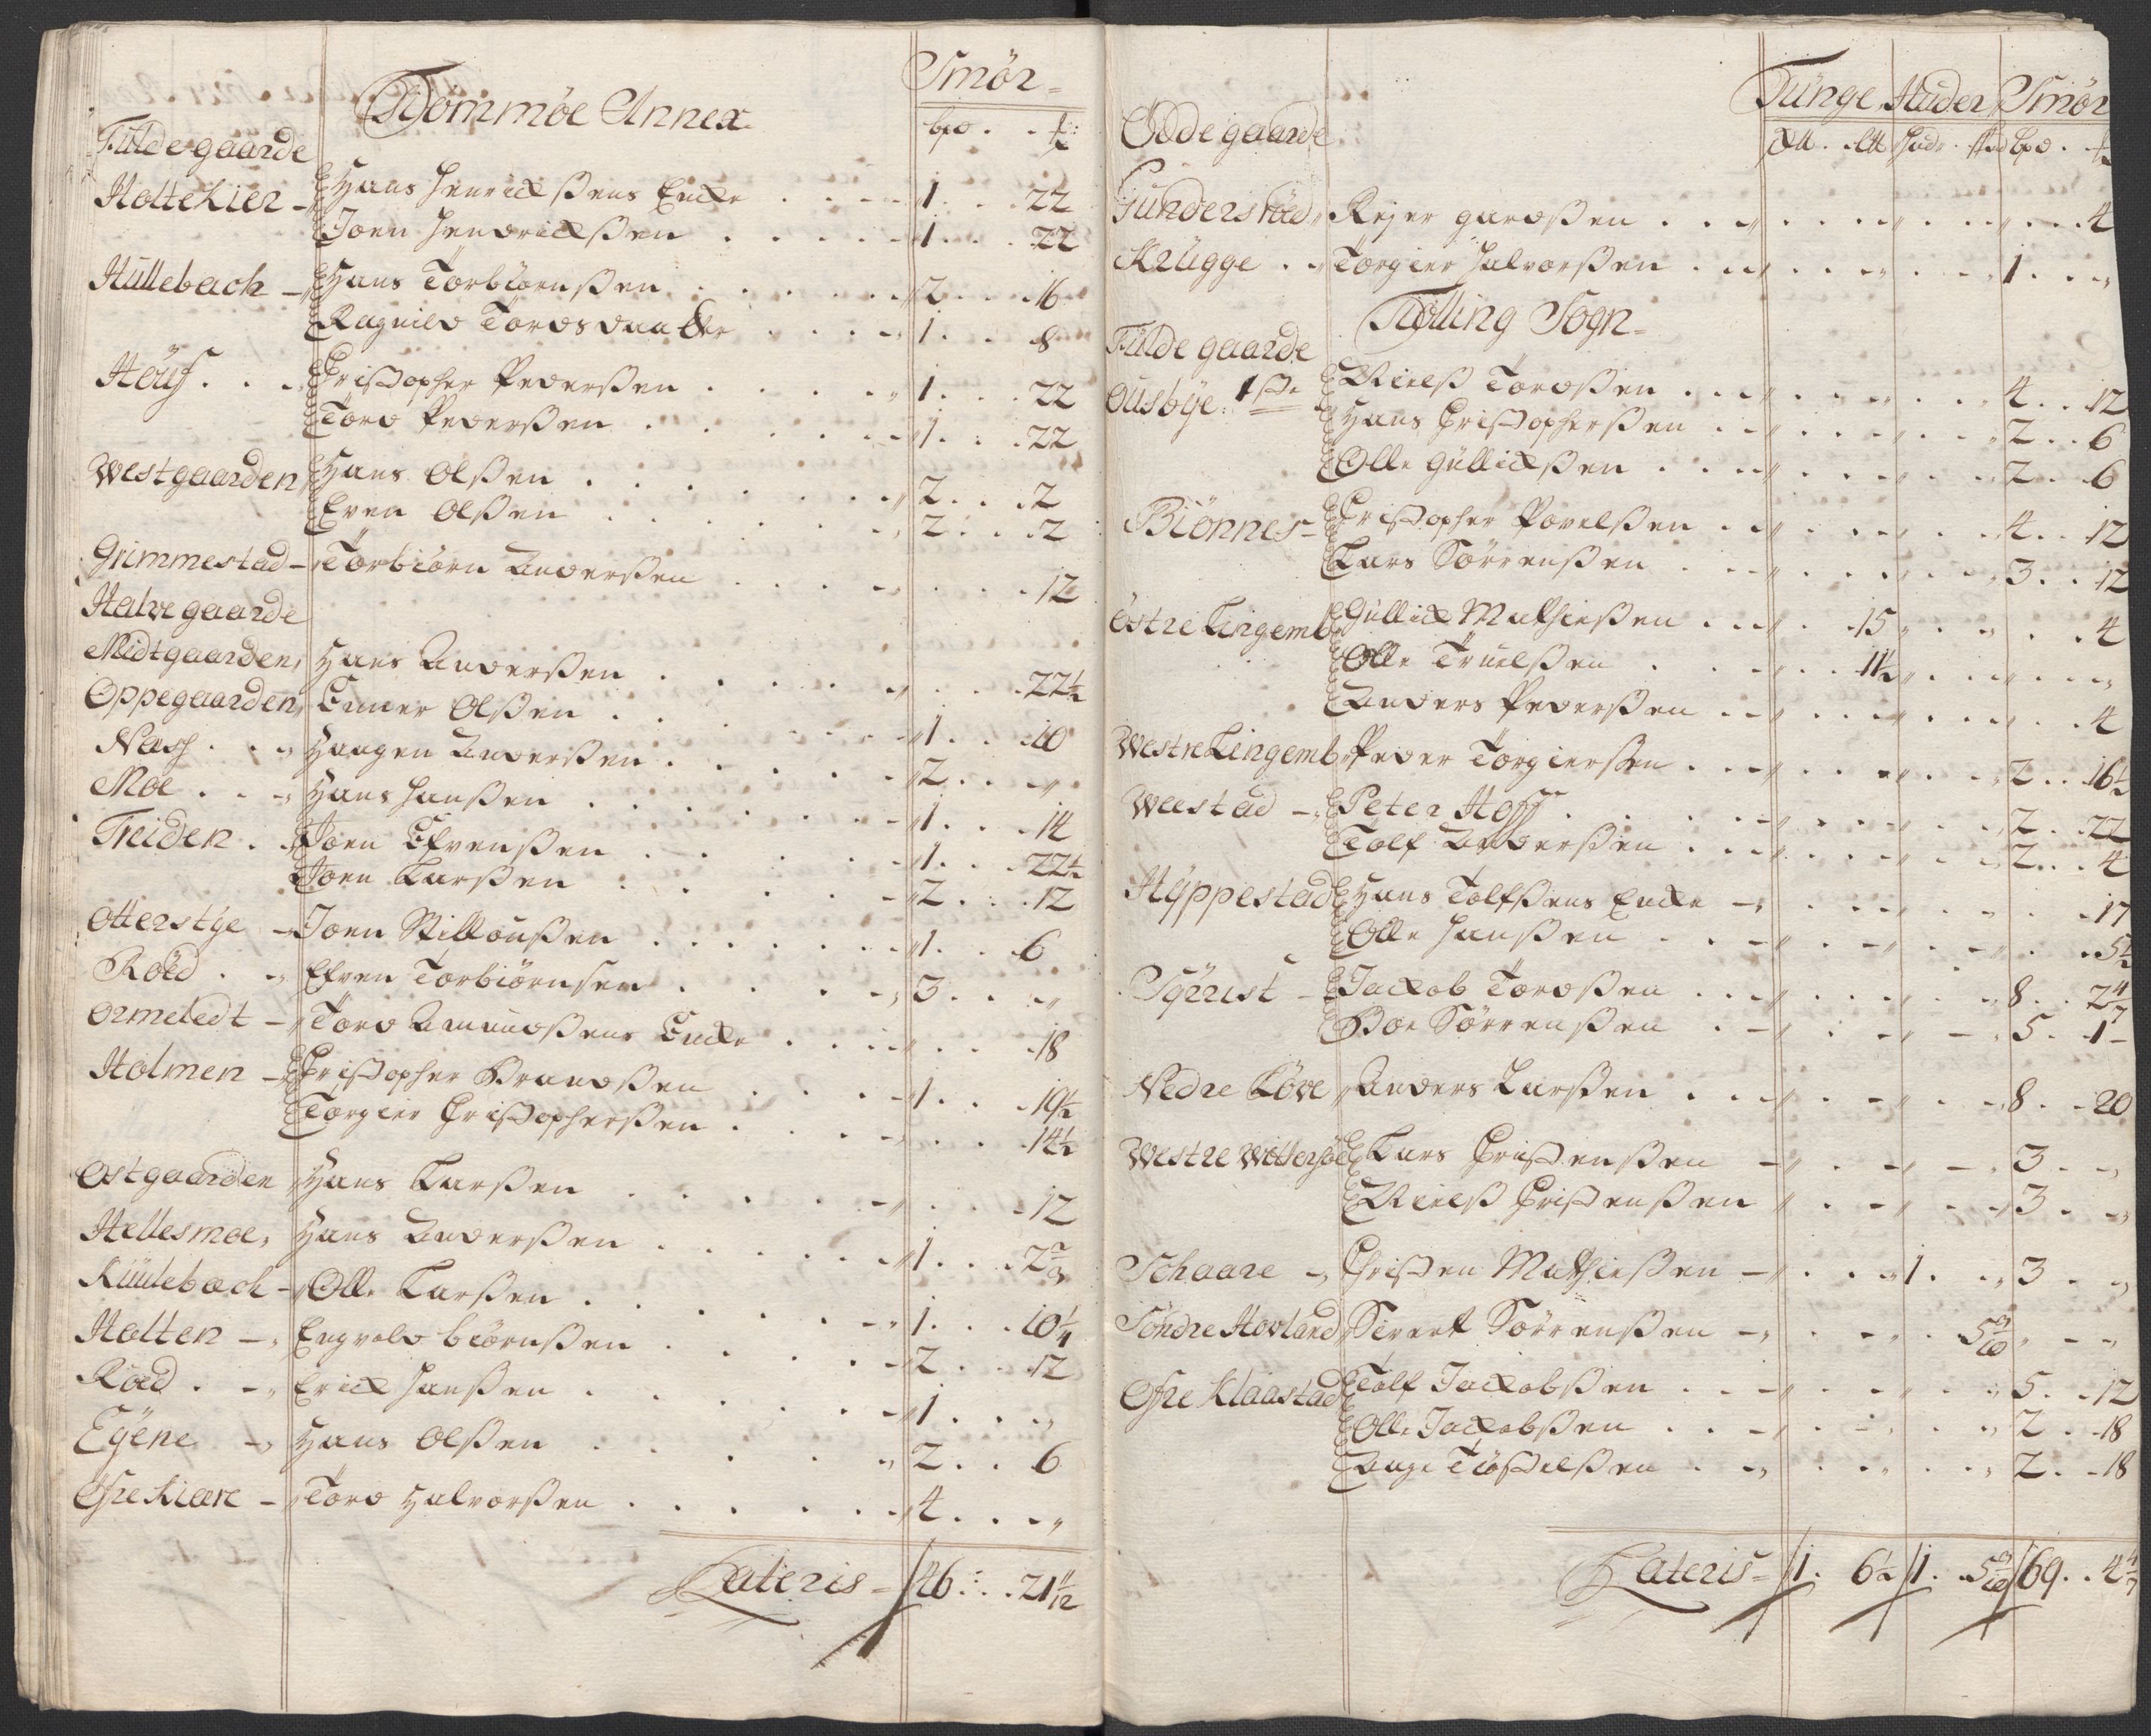 Tiommöe Annex
Smör
bpd . . ℔
Fulde gaarde
Holtekier - Hans Henrickßens Encke . . . 1 . . . 22
Joen Hendrickßen . . . . 1 . . . 22
Hullebach - Hans Torbiörnßen . . . . 2 . . . 16
Ragnild Tordsdaatter . . . . 1 . . . 8
Höuf . . . Christopher Pederßen . . . . 1 . . . 22
Tord Pederßen . . . . 1 . . . 22
Westgaarden Hans Olßen . . . . 2 . . . 2
Even Olßen . . . . 2 . . . 2
Grimmestad - Torbiörn Anderßen . . . . 12
Halve gaarde
Midtgaarden, Hans Anderßen . . . . 22½
Oppegaarden, Einer Olßen . . . . 1 . . . 10
Næss . . . Haagen Anderßen . . . . 2 . . . "
Moe . . . Hans Hanßen . . . . 1 . . . 14
Treiden . . Joen Efvenßen . . . . 1 . . . 22½
Joen Larßen . . . . 2 . . . 12
Otterstye - Joen Nillaußen . . . . 1 . . . 6
Röed . . Efven Torbiörnsen . . . . 3 . . . "
Ormeledt - Tord Amundßens Encke . . . . 18
Holmen - Christopher Brandßen . . . . 1 . . . 19½
Torgier Christopherßen . . . . 14½
Ostgaarden Hans Larßen . . . . 12
Hellesmoe, Hans Anderßen . . . . 1 . . . 2⅔
Kiulebæch - Olle Larßen . . . . 1 . . . 10¼
Holten - Engvold biörnßen . . . . 2 . . . 12
Röed . - Erick Hanßen . . . . 1 . . . "
Eÿene - Hans Olßen . . . . 2 . . 6
Ofre Kiære - Tord Halvorßen . . . . 4 . . . "
Lateris - 46 . . . 21 11/12
Tunge Huder Smör
Ödegaarde
Gunderstöed Rejer gardßen . . . . 4
Krugge . . Torgier Halvorßen . . . . 1 . . . "
Tiölling Sogn
Fulde gaarde
Ousbÿe: 1ste Nielß Tordßen . . . . 4 . . 12
Hans Christopherßen . . . . 2 . . 6
Olle Gullickßen . . . . 2 . . 6
Biönnes - Christopher Povelßen . . . . 4 . . 12
Lars Sörrenßen . . . . 3 . . 12
Östre Lingemb Gullick Mathießen . . . . 15 . . . . 4
Olle Truelßen . . . . 11½ . . . . "
Anders Pederßen . . . . 4
Westre Lingemb Peder Torgierßen . . . . 2 . . 16½
Weestad - Peter Hoff . . . . 2 . . 22
Tolf Anderßen . . . . 2 . . 4
Hÿppestad Hans Tolfßens Encke - . . . . 17
Olle Hanßen . . . . 5½
Tÿrrist - Jackob Tordßen . . . . 8 . . 2 4/7
Boe Sörrenßen . . . . 5 . 1 -
Nedre Löve Anders Larßen . . . . 8 . . 20
Westre Wittersöe Lars Christenßen - . . . . 3 . . "
Nielß Christenßen . . . . 3 . . "
Schaare - Christen Mathießen - . . . 1 . . 3 . . "
Söndre Hovland Sivert Sörrenßen - . . . 5 9/10 . . "
Ofre Klaastad Tolf Jackobßen . . . . 5 . . 12
Olle Jackobßen . . . . 2 . . 18
Aage Tiöstelßen . . . . 2 . . 18
Lateris - 1 . 6½ 1 . 5 9/10 69 . . 2 4/7